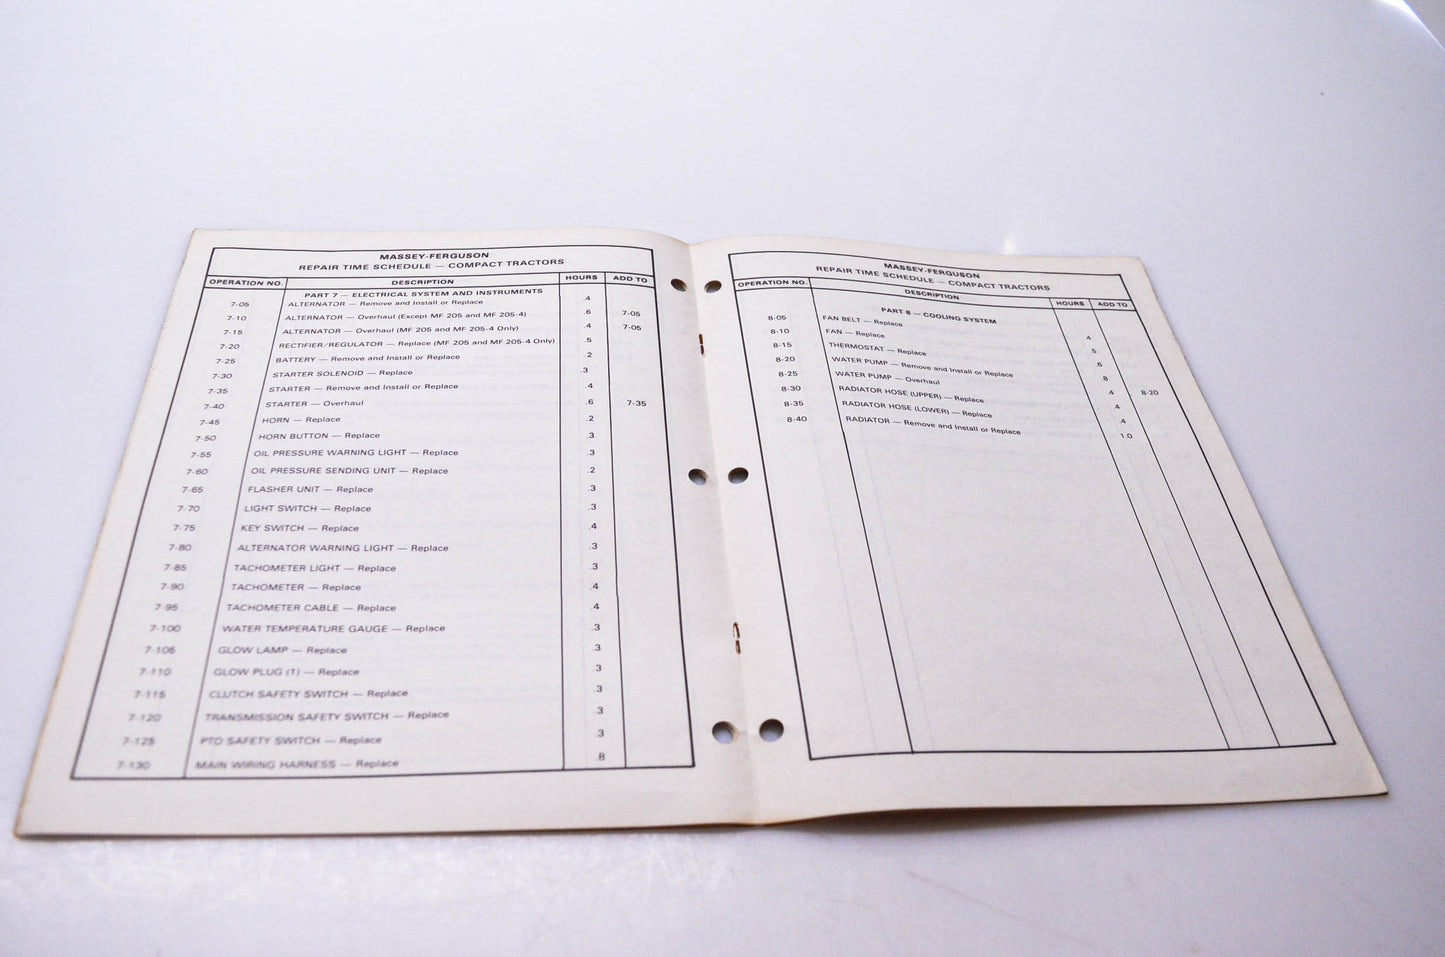 MASSEY-FERGUSON
REPAIR TIME SCHEDULE — COMPACT TRACTORS
OPERATION NO. DESCRIPTION HOURS ADD TO
PART 7 — ELECTRICAL SYSTEM AND INSTRUMENTS
7-05 ALTERNATOR — Remove and Install or Replace .4
7-10 ALTERNATOR — Overhaul (Except MF 205 and MF 205-4) .6 7-05
7-15 ALTERNATOR — Overhaul (MF 205 and MF 205-4 Only) .4 7-05
7-20 RECTIFIER/REGULATOR — Replace (MF 205 and MF 205-4 Only) .5
7-25 BATTERY — Remove and Install or Replace .2
7-30 STARTER SOLENOID — Replace .3
7-35 STARTER — Remove and Install or Replace .4
7-40 STARTER — Overhaul .6 7-35
7-45 HORN — Replace .2
7-50 HORN BUTTON — Replace .3
7-55 OIL PRESSURE WARNING LIGHT — Replace .3
7-60 OIL PRESSURE SENDING UNIT — Replace .2
7-65 FLASHER UNIT — Replace .3
7-70 LIGHT SWITCH — Replace .3
7-75 KEY SWITCH — Replace .4
7-80 ALTERNATOR WARNING LIGHT — Replace .3
7-85 TACHOMETER LIGHT — Replace .3
7-90 TACHOMETER — Replace .4
7-95 TACHOMETER CABLE — Replace .4
7-100 WATER TEMPERATURE GAUGE — Replace .3
7-105 GLOW LAMP — Replace .3
7-110 GLOW PLUG (1) — Replace .3
7-115 CLUTCH SAFETY SWITCH — Replace .3
7-120 TRANSMISSION SAFETY SWITCH — Replace .3
7-125 PTO SAFETY SWITCH — Replace .3
7-130 MAIN WIRING HARNESS — Replace .8
MASSEY-FERGUSON
REPAIR TIME SCHEDULE — COMPACT TRACTORS
OPERATION NO. DESCRIPTION HOURS ADD TO
PART 8 — COOLING SYSTEM
8-05 FAN BELT — Replace .4
8-10 FAN — Replace .5
8-15 THERMOSTAT — Replace .6
8-20 WATER PUMP — Remove and Install or Replace .8
8-25 WATER PUMP — Overhaul .4 8-20
8-30 RADIATOR HOSE (UPPER) — Replace .4
8-35 RADIATOR HOSE (LOWER) — Replace .4
8-40 RADIATOR — Remove and Install or Replace 1.0